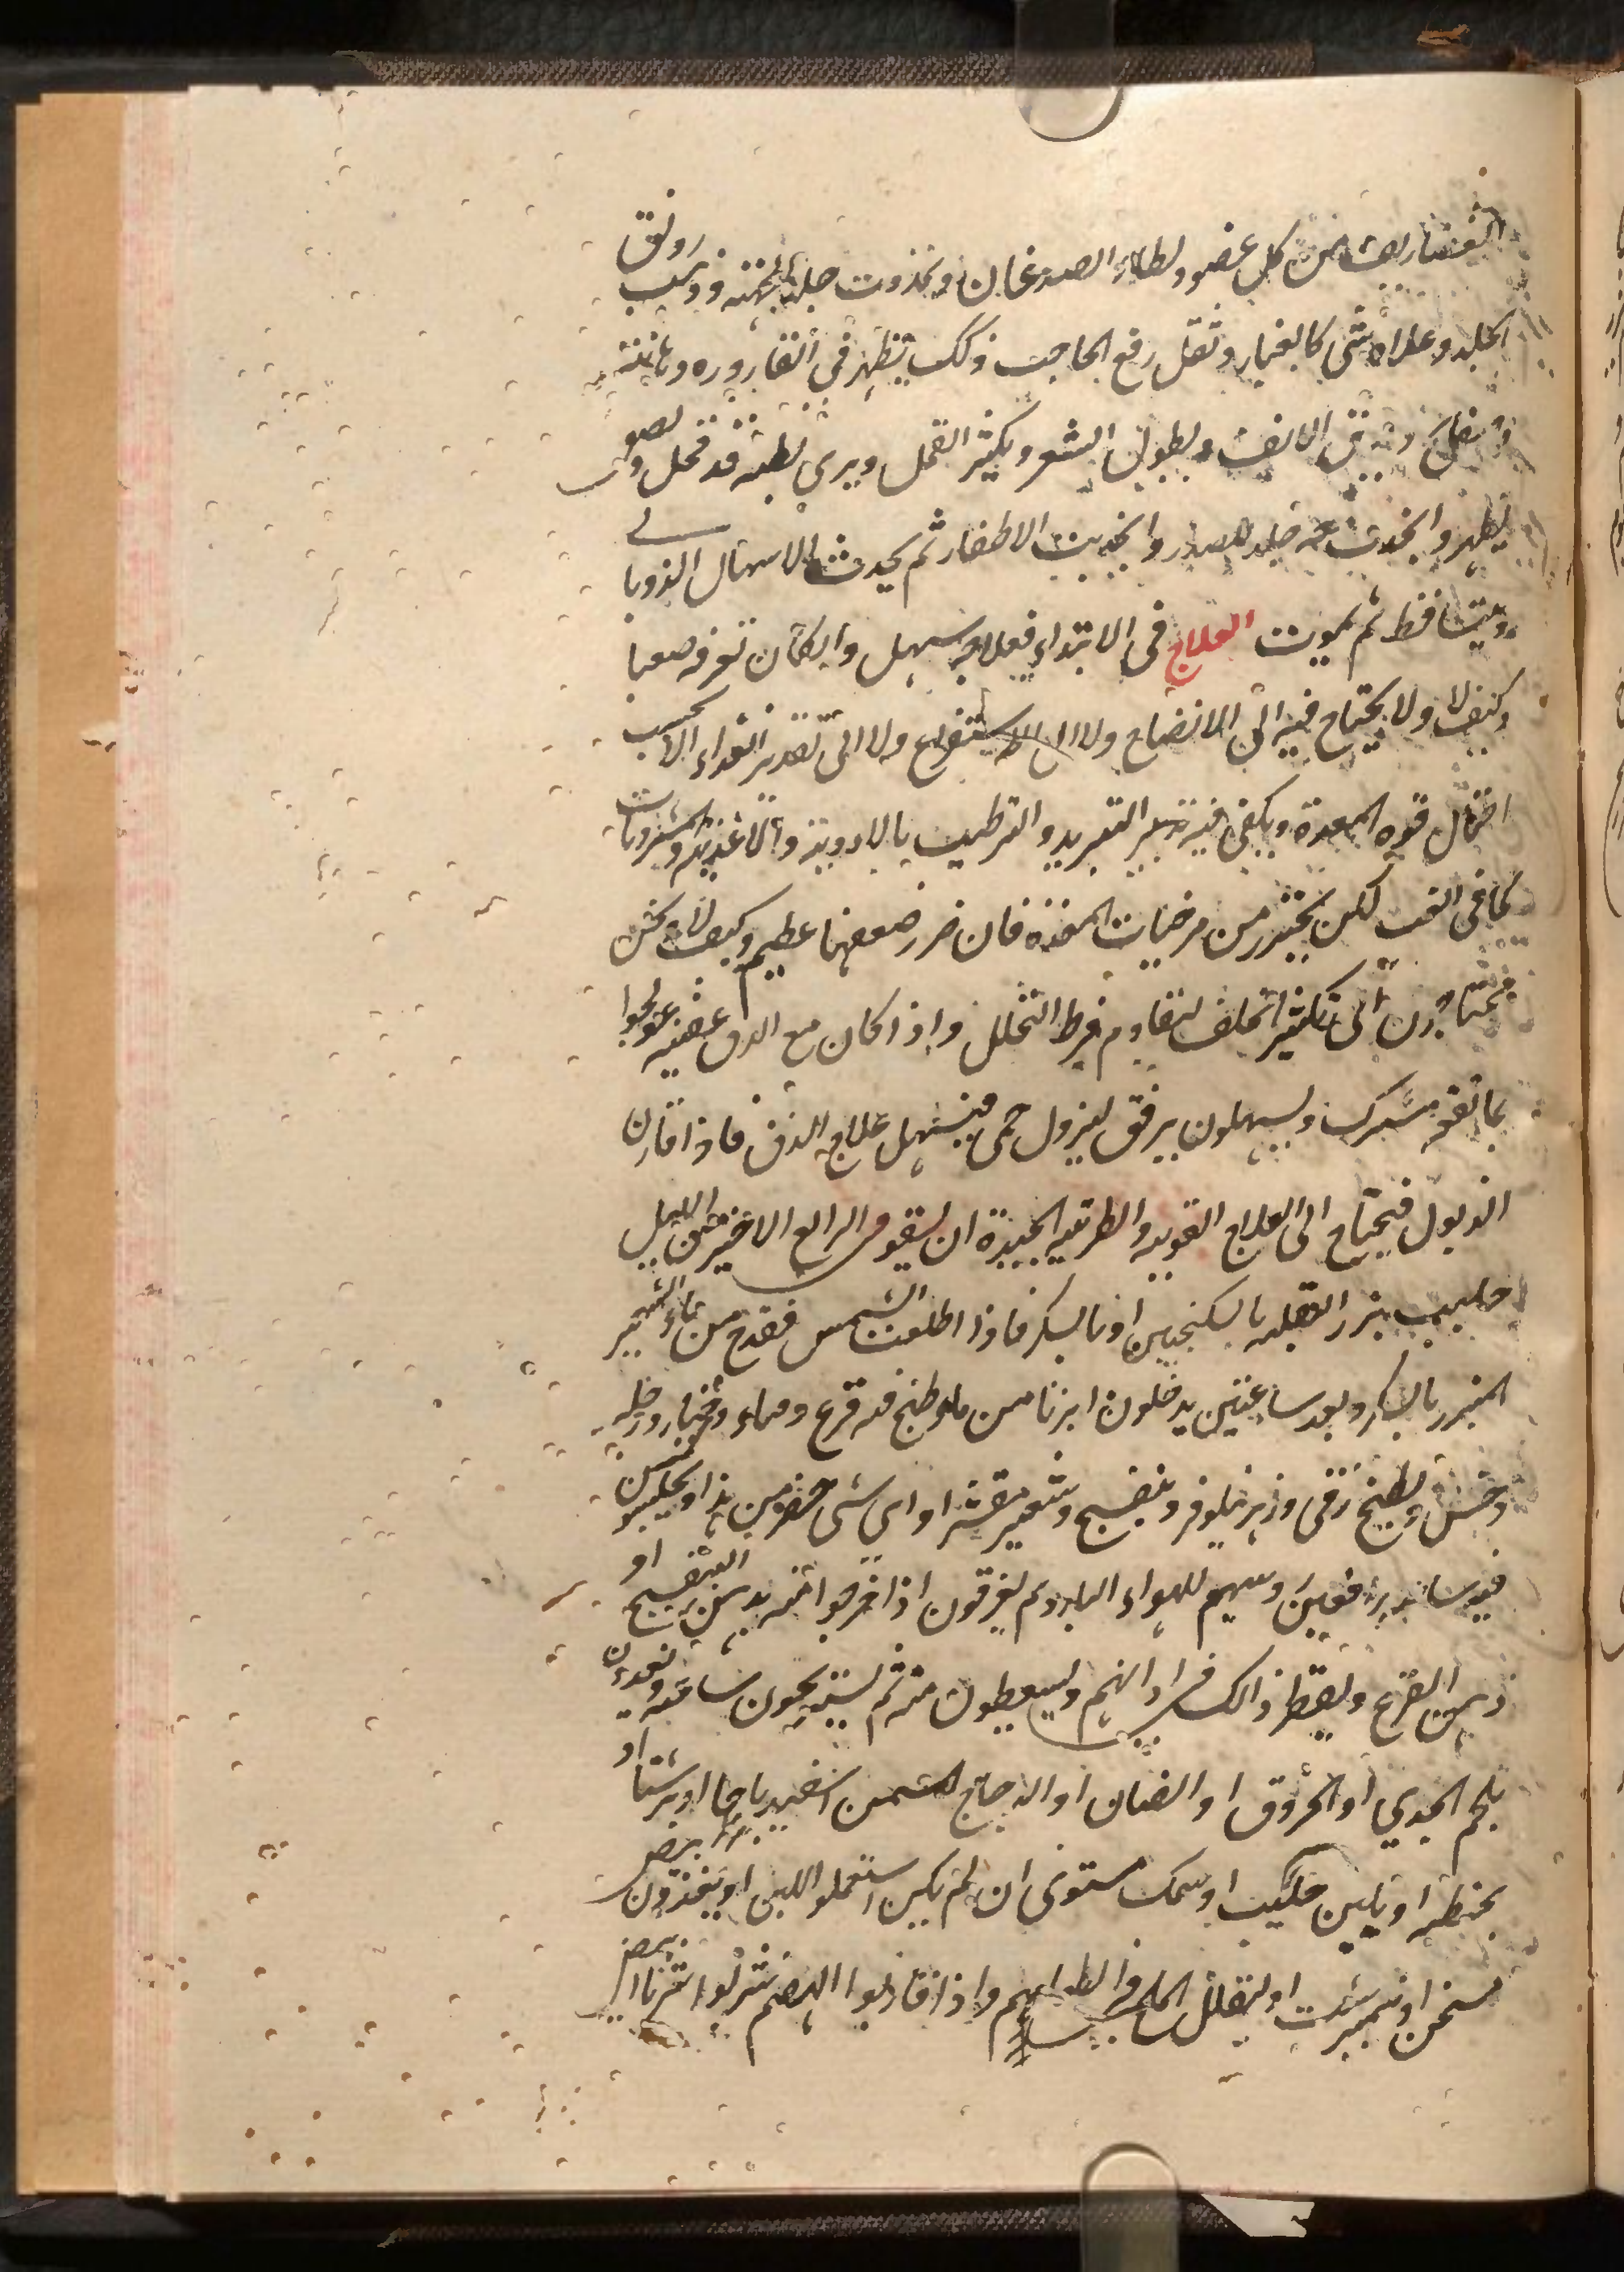 الغضاريف من كل عضو ولطاء الصدغان وتمددت جلدة الجبهة وذهب رونق
الجلد وعلاه شئ كالغبار وثقل رفع الحاجب وذلك يظهر فى القاروره دهانته
وصفايح ويدق الانف ويطول الشعر ويكثر القمل ويرى بطنه قد قحل ولصق
بالظهر وانجذبت معه جلد الصدر وانحدبت الاظفار ثم يحدث الاسهال الذوبانى
ويتساقط ثم يموت العلاج فى الابتداء فعلاجه سهل وان كان تعرفه صعبا
وكيف لا ولا يحتاج فيه الى الانضاج ولا الى الاستفراغ ولا الى تقدير الغداء الا بحسب
احتمال قوه المعدة ويكفى فيه تدبير التبريد والترطيب بالادوية والاغذية والمشروبات
كما فى الغب لكن يحتذر من مرخيات المعدة فان ضرر ضعفها عظيم وكيف لا ونحن
محتاجون الى تكثير الخلف ليقاوم فرط التحلل واذا كان مع الدق عفنيه عولجوا
بما تقف مشترك ويسهلون برفق ليزول حمى فيسهل علاج الدق فاذا قارن
الذبول فيحتاج الى العلاج القويه والطريقه الجيدة ان يسقو فى الرابع الاخير من الليل
حليب بزر البقله بالسكنجبين او بالسكر فاذا اطلعت الشمس فقدح من ماء الشعير
المبزر بالسكر وبعد ساعتين يدخلون ابزنا من ماء طبخ فيه قرع وماء وخيار ورجله
وخس وبطيخ رقى وزهر نيلوفر وبنفسج وشعير مقشر او اى شى حضر من هذا ويجلسون
فيه ساعه رافعين وسهم للهواء البارد ثم يغرقون اذا خرجوا منه بدهن البنفسج او
دهن القرع ويقطر ذالك فى اذانهم وليسعطون منه ثم ليستريحون ساعه ويغدون
بلحم الجدي او الخروق او الضان او الدجاج المسمن اسفيدباجا او برشتا او
بحنطه او بلبن حليب او سمك مستوى ان لم يكن استعملوا اللبن او يتغذون ببيض
مسخن او نيمبرشت او ليقلل الملح فى الطعامهم واذا قاربوا الهضم شربوا شرابا ابيض